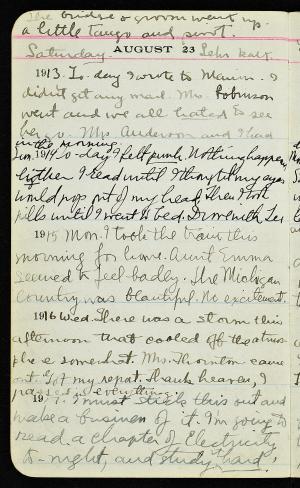 The bride & groom went up.
a little tango and pivot.
Saturday. AUGUST 23
1913. To-day I wrote to Mamm. I
didn't get any mail. Mr. Robinson
went and we all hated to see
her go. Mrs. Anderson and I had
in the morning.
Sun. 1914 To-day I felt punk. Nothing happen,
either. I read until I thought my eyes
would pop out of my head, then I took
pills until I went to bed. Done with
1915 Mon. I took the train this
morning for home. Aunt Emma
seemed to feel badly. The Michigan
country was beautiful. No excitement.
1916 Wed. There was a storm this
afternoon that cooled off the atmos-
phere somewhat. Mrs. Thornton came
out. Got my report. Thank heaven, I
passed in everything.
1917. I must stick this out and
make a business of it. I'm going to
read a chapter of Electricity
to-night, and study hard.